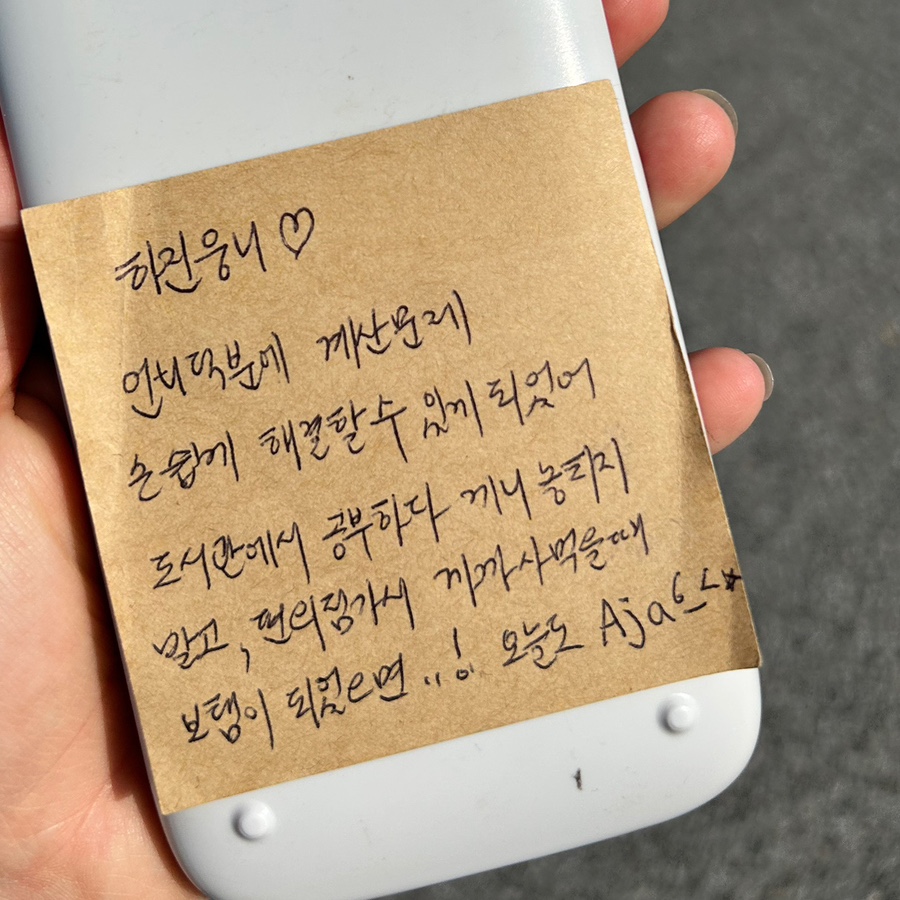 하진웅니 ♡
언니덕분에 계산문제
손쉽게 해결할수 있게 되었어
도서관에서 공부하다 끼니 놓치지
말고, 편의점가서 까까사먹을때
보탬이 되었으면..! 오늘도 Aja